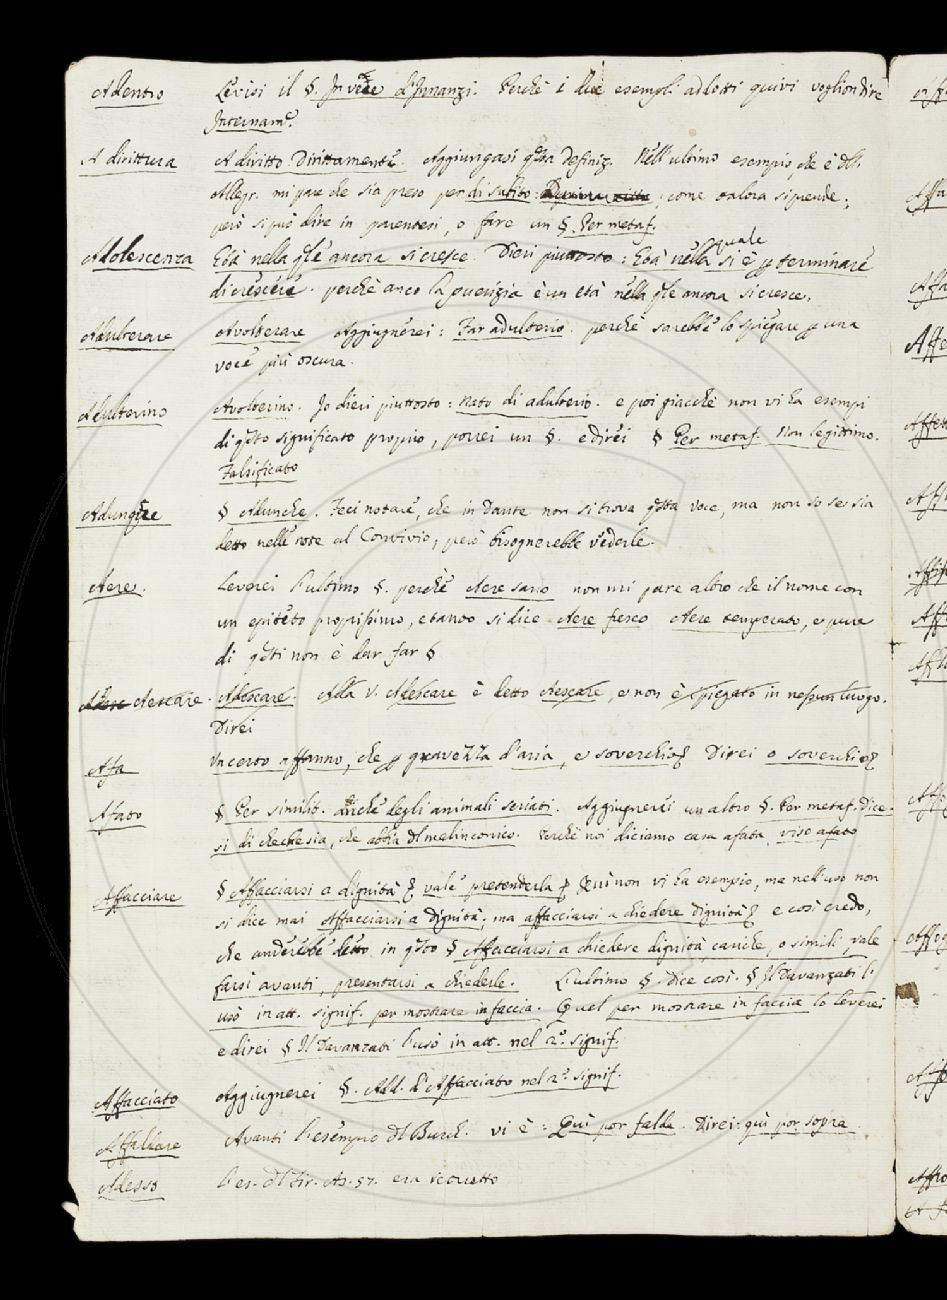 Adentro Levisi il §. In vece d'Innanzi. Perche i due esempli addotti quivi voglion dire
Internam.e
A dirittura A diritto Dirittamente. Aggiungasi q.sta Definiz. Nell'ultimo esempio, che è dll'
Allegr. mi pare che sia preso per di subito: come talora si prende;
però si può dire in parentesi, o fare un §. Per metaf.
quale
Adolescenza Età nella q.le ancora si cresce. Direi piuttosto: Età nella si è p terminare
di crescere. perchè anco la puerizia è un età nella q.le ancora si cresce.
Adulterare Avolterare Aggiugnerei: Far adulterio. perchè sarebbe lo spiegare p una
voce più oscura.
Adulterino Avolterino. Io direi piuttosto: Nato di adulterio. e poi giacchè non vi ha esempi
di q.sto significato proprio, porrei un §. e direi § Per metaf. Non legittimo.
Falsificato
§ Adunche. Feci notare, che in Dante non si trova q.sta voce, ma non so se sia
detto nelle note al Convivio, però bisognerebbe vederle.
Aere. Leverei l'ultimo §. perchè Aere sano non mi pare altro che il nome con
un epiteto propissimo, e tanto si dice Aere fresco Aere temperato, e pure
di q.sti non è da far §
Aescare. Adescare. Alla v. Adescare è detto Aescare, e non è spiegato in nessun luogo.
Direi
Afa Un certo affanno, che p gravezza d'aria, e soverchio Direi o soverchio
Afato § Per similit. anche degli animali seriati. Aggiugnerei un altro §. Per metaf. dice-
si di checchesia, che abbia dl malinconico. Perchè noi diciamo casa afata, viso afato
Affacciare § Affacciarsi a dignità vale pretenderla Qui non vi ha esempio, ma nell'uso non
si dice mai Affacciarsi a dignità; ma affacciarsi a chiedere dignità e così credo,
che anderebbe detto in q.sto § Affacciarsi a chiedere dignità, cariche, o simili, vale
farsi avanti, presentarsi a chiederle. L'ultimo § dice così. § Il Davanzati l'
usò in att. signif. per mostrare in faccia. Quel per mostrare in faccia lo leverei
e direi § Il Davanzati l'usò in att. nel 2.o signif.
Affacciato Aggiugnerei §. Add. d'Affacciato nel 2.o signif.
Affaldare Avanti l'esempio dl Burch. vi è: Qui por falda. Direi: qui por sopra.
Adesso l'es. dl Fir. As. 57. era scorretto